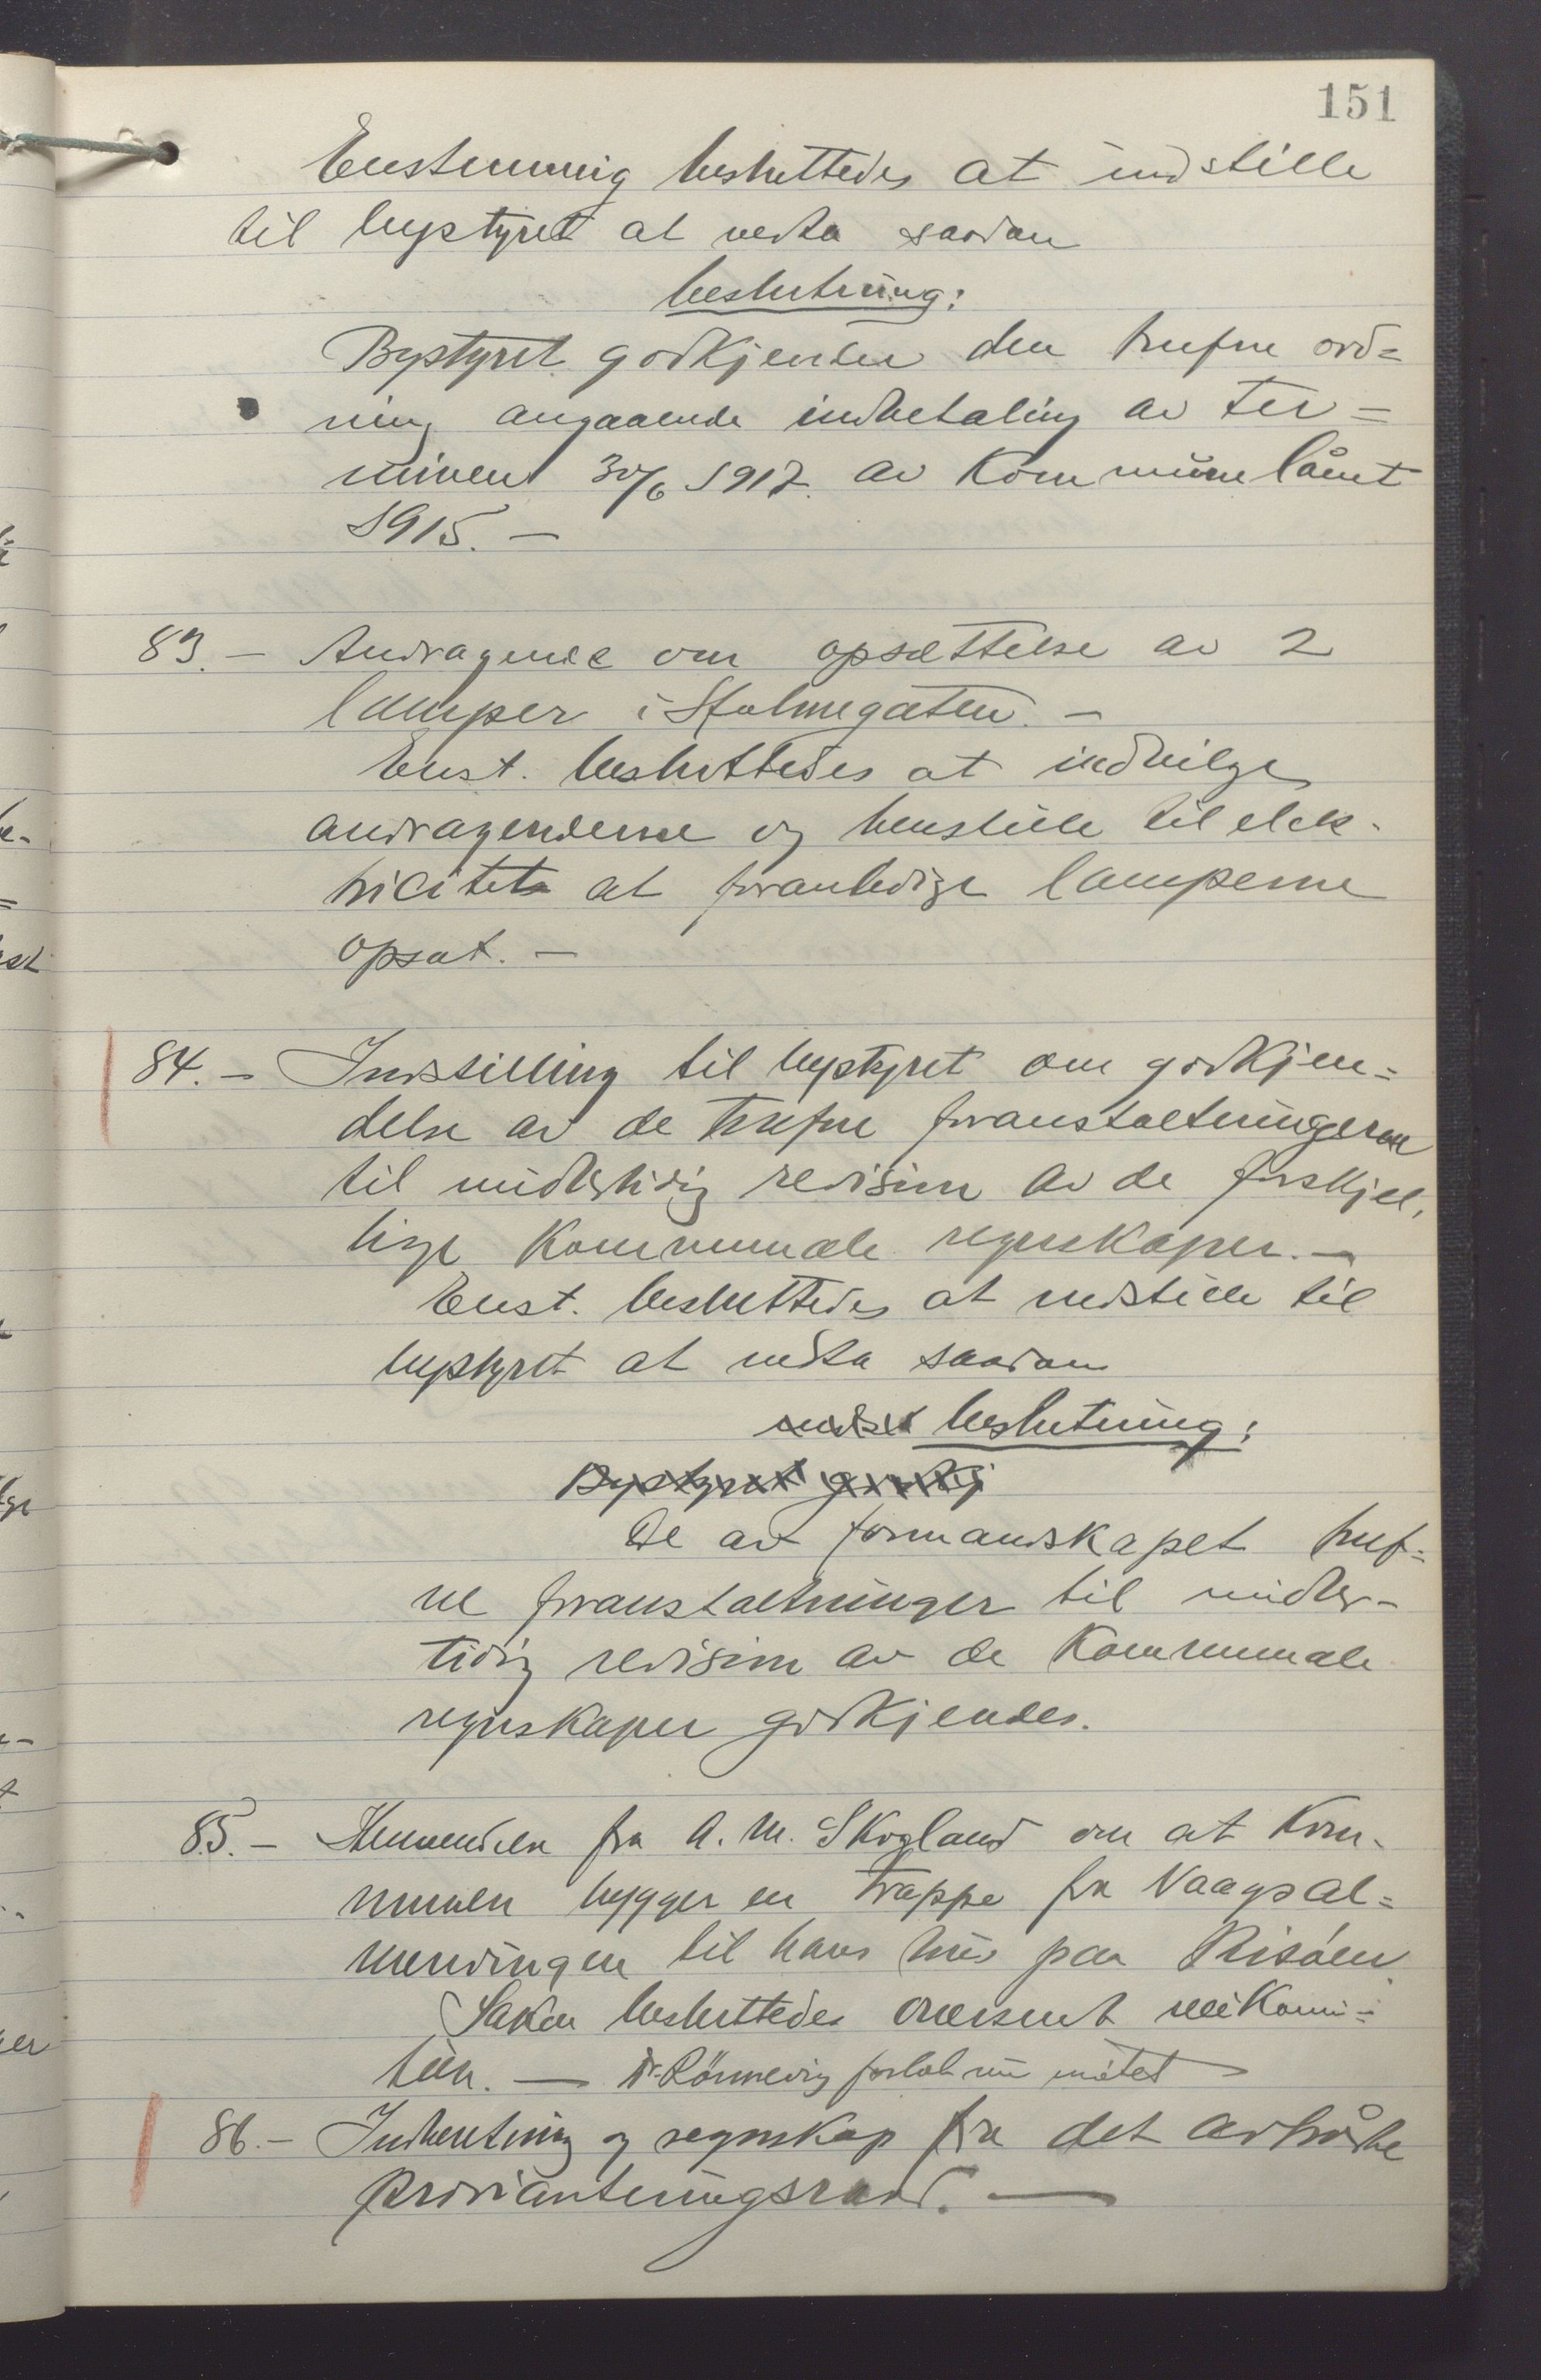 151
Enstemmig besluttedes at indstille
til bystyret at vedta saadan
beslutning:
Bystyret godkjender den trufne ord=
ning angaaende indbetaling av ter=
minen 30/6 1917. av Kommunelånet
1915. —
83. — Andragende om opsættelse av 2
lamper i Stolmegaten. —
Enst. besluttedes at indvilge
andragenderne og henstille til elek-
tricitets at foranledige lamperne
opsat. —
84. — Indstilling til bystyret om godkjen=
delse av de trufne foranstaltningerne
til midlertidig revision av de forskjel,
lige Kommunale regnskaper. —
Enst. besluttedes at indstille til
bystyret at vedta saadan
beslutning:
Bystyret godkj
De av formandskapet truf=
ne foranstaltninger til midler-
tidig revision av de Kommunale
regnskaper godkjendes.
85. — Henvendelse fra A. M. Skogland om at Kom-
munen bygger en trappe fra Vaagsal=
mendingen til hans hus paa Risøen
Saken besluttedes oversendt veikomi=
teen. — Dr. Rönnevig forlot nu mötet
86. — Indhentning og regnskap fra det avtrådte
Provianteringsraad. —